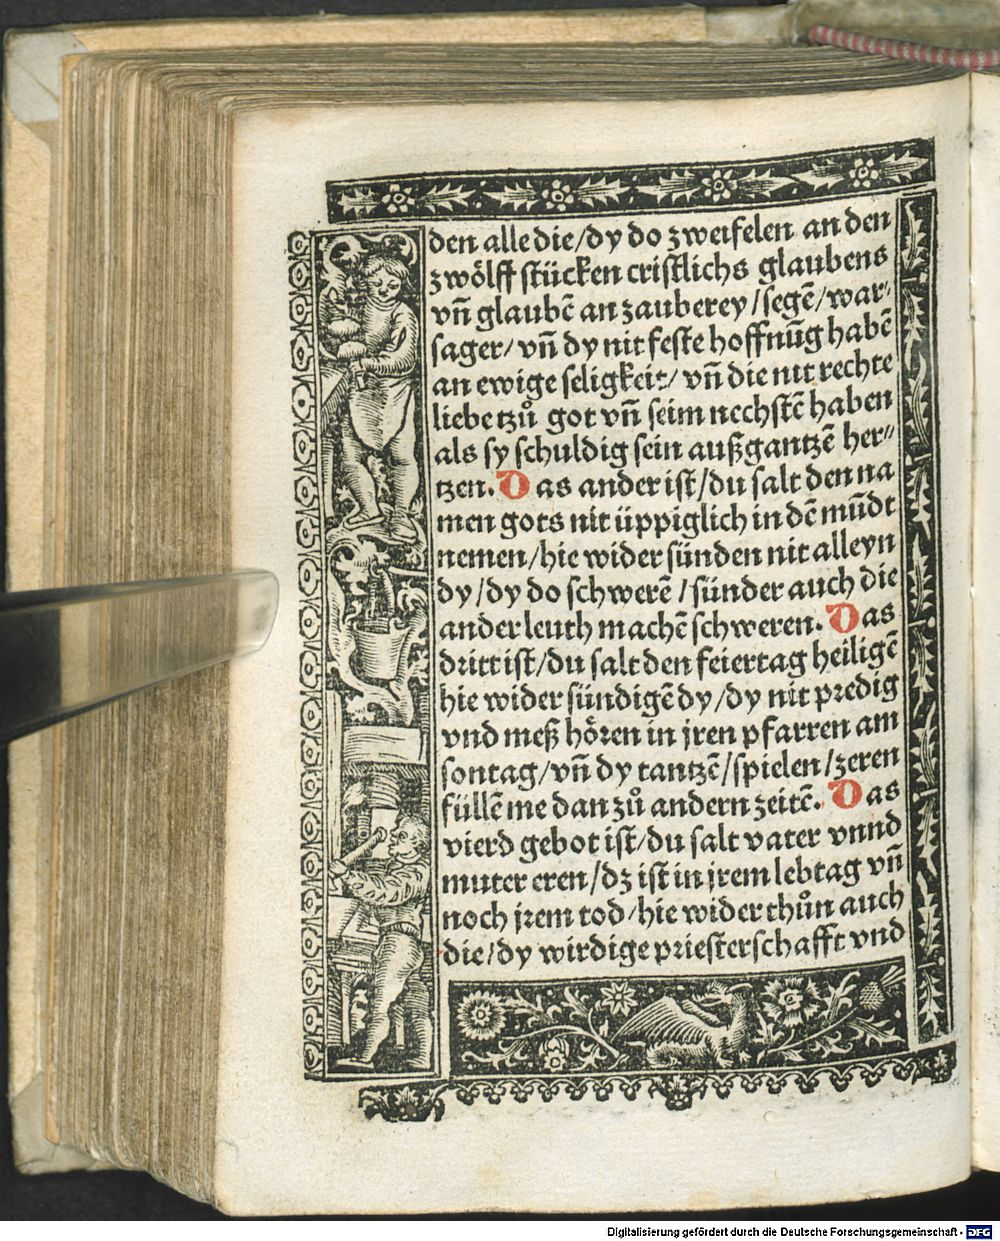 den alle die/dy do zweifelen an den
zwölff stücken cristlichs glaubens
vñ glaubē an zauberey/segē/war⸗
sager/vñ dy nit feste hoffnūg habē
an ewige seligkeit/vñ die nit rechte
liebe tzů got vñ seim nechstē haben
als sy schuldig sein außgantzē her⸗
tzen. Das ander ist/du salt den na
men gots nit üppiglich in dē mūdt
nemen/hie wider sünden nit alleyn
dy/dy do schwerē/sünder auch die
ander leuth machē schweren. Das
dritt ist/du salt den feiertag heiligē
hie wider sündigē dy/dy nit predig
vnd meß hören in jren pfarren am
sontag/vñ dy tantzē/spielen/zeren
füllē me dan zů andern zeitē. Das
vierd gebot ist/du salt vater vnnd
muter eren/dz ist in jrem lebtag vñ
noch jrem tod/hie wider thůn auch
die/dy wirdige priesterschafft vnd
Digitalisierung gefördert durch die Deutsche Forschungsgemeinschaft - DFG